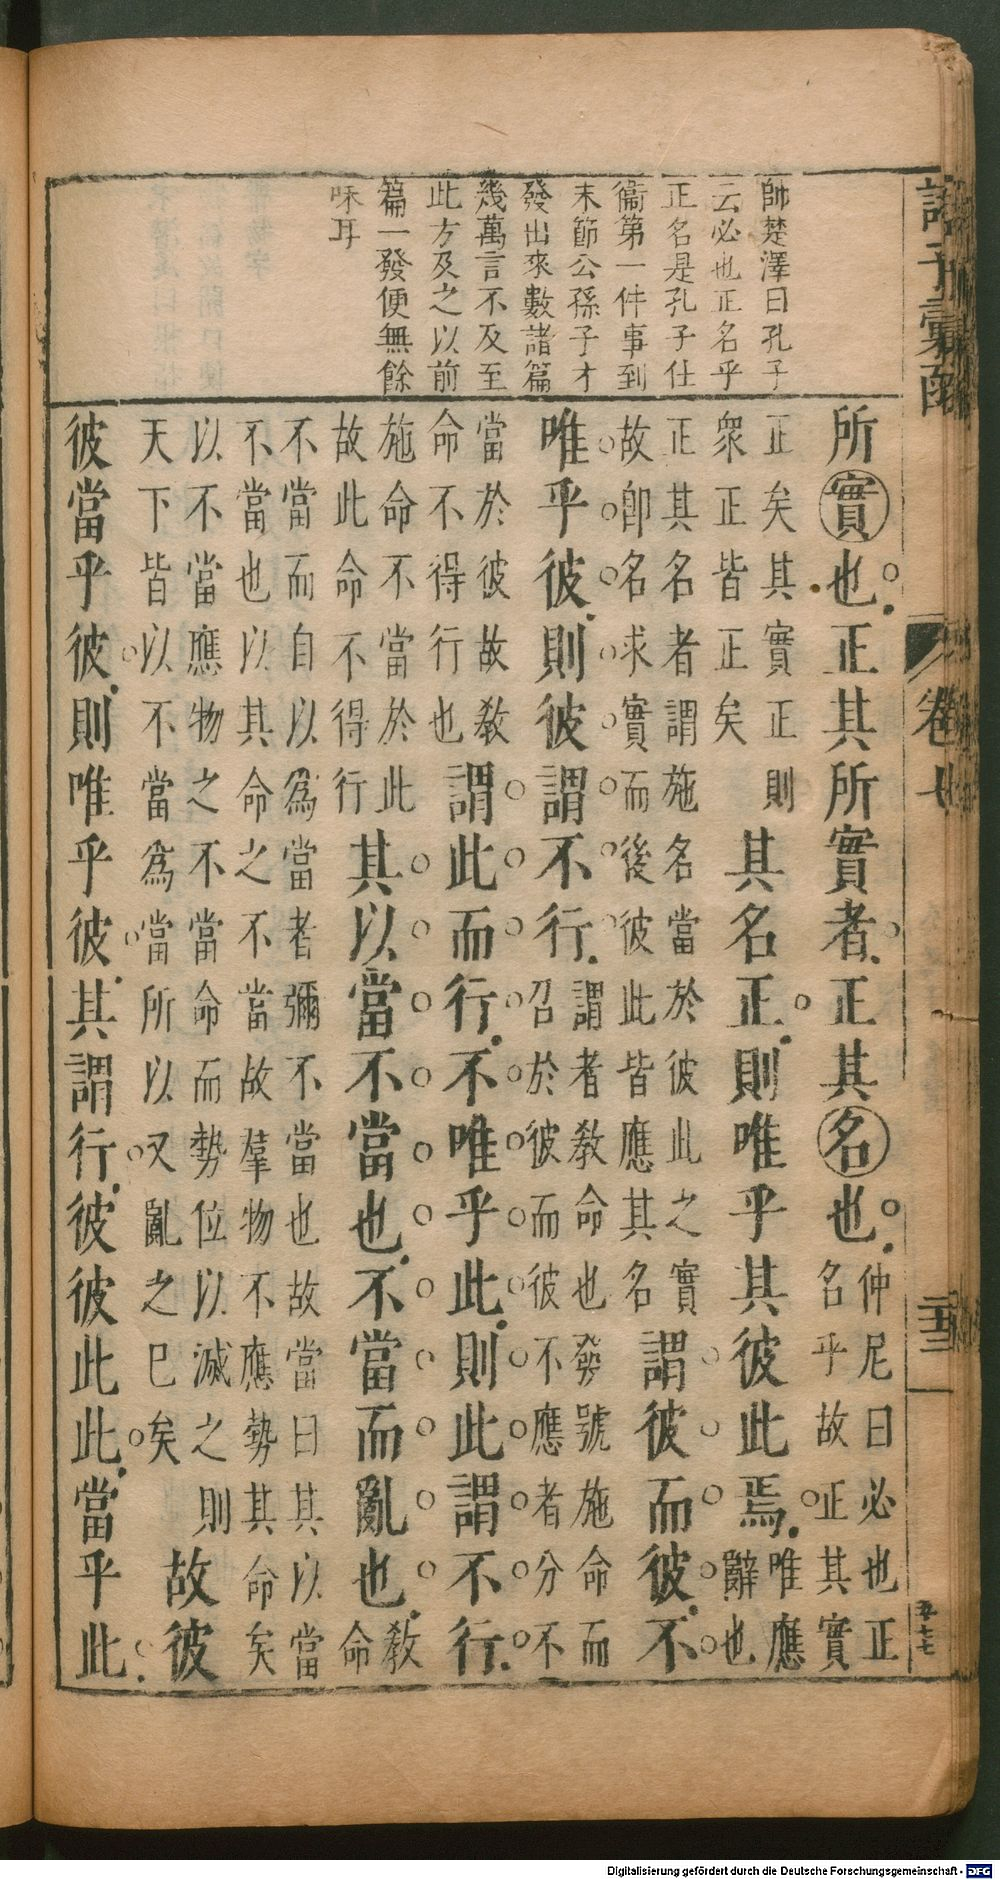 諸子彙函
卷七
帥楚澤曰孔子
云必也正名乎
正名是孔子仕
衛第一件事到
末節公孫子才
發出來數諸篇
幾萬言不及至
此方及之以前
篇一發便無餘
味耳
所實也正其所實者正其名也仲尼曰必也正
名乎故正其實
正矣其實正則
衆正皆正矣
其名正則唯乎其彼此焉唯應
辭也
正其名者謂施名當於彼此之實
故即名求實而後彼此皆應其名
謂彼而彼不
唯乎彼則彼謂不行謂者教命也發號施命而
召於彼而彼不應者分不
當於彼故敎
命不得行也
謂此而行不唯乎此則此謂不行
施命不當於此
故此命不得行
其以當不當也不當而亂也敎
命
不當而自以爲當者彌不當也故當曰其以當
不當也以其命之不當故羣物不應勢其命矣
以不當應物之不當當命而勢位以滅之則
天下皆以不當爲當所以又亂之巳矣
故彼
彼當乎彼則唯乎彼其謂行彼彼此此當乎此
Digitalisierung gefördert durch die Deutsche Forschungsgemeinschaft - DFG